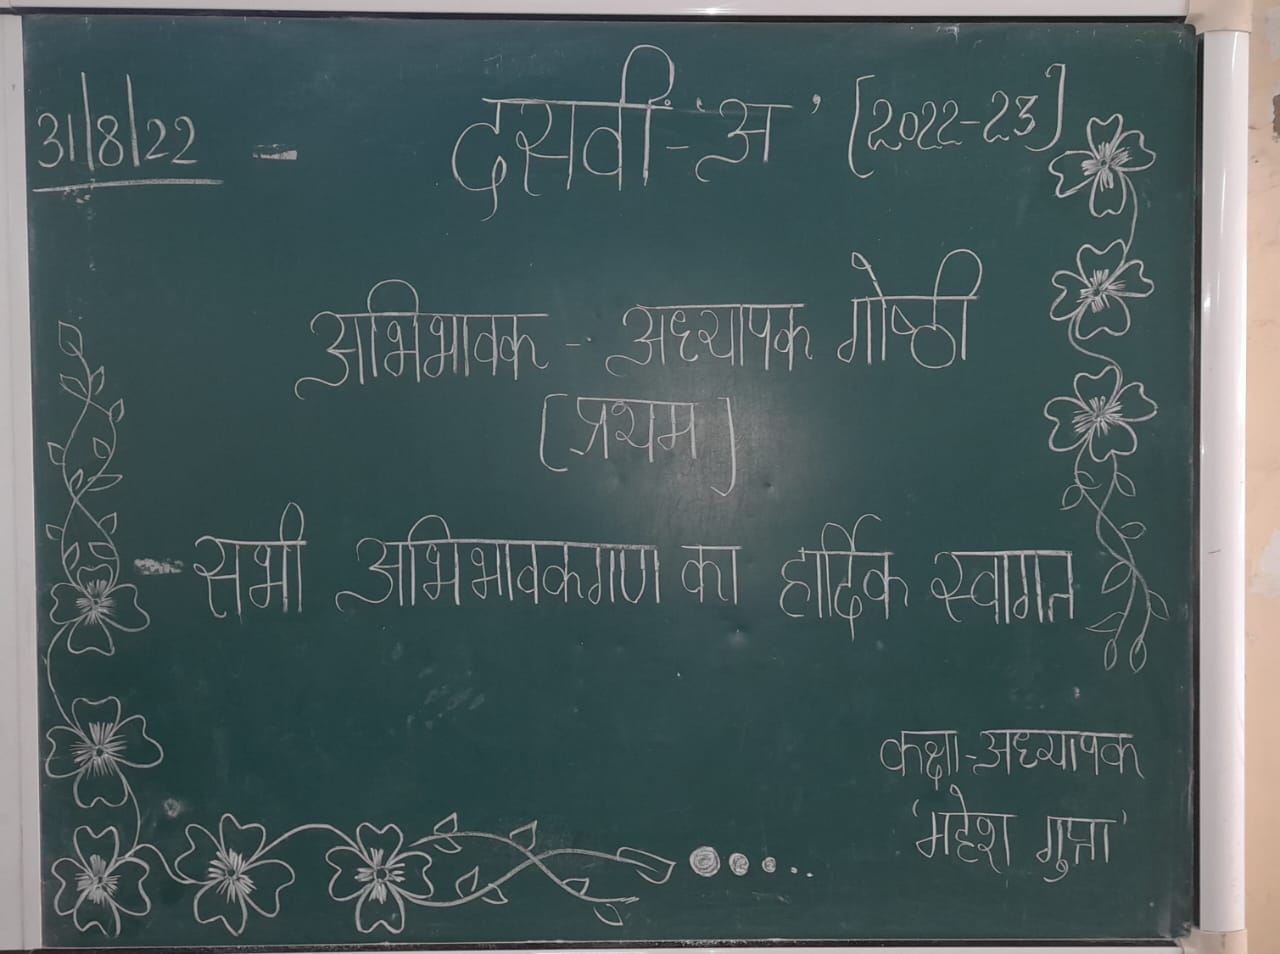 31/8/22
दसवीं-'अ' [2022-23]
अभिभावक - अध्यापक गोष्ठी
[प्रथम]
सभी अभिभावकगण का हार्दिक स्वागत
कक्षा-अध्यापक
'महेश गुप्ता'